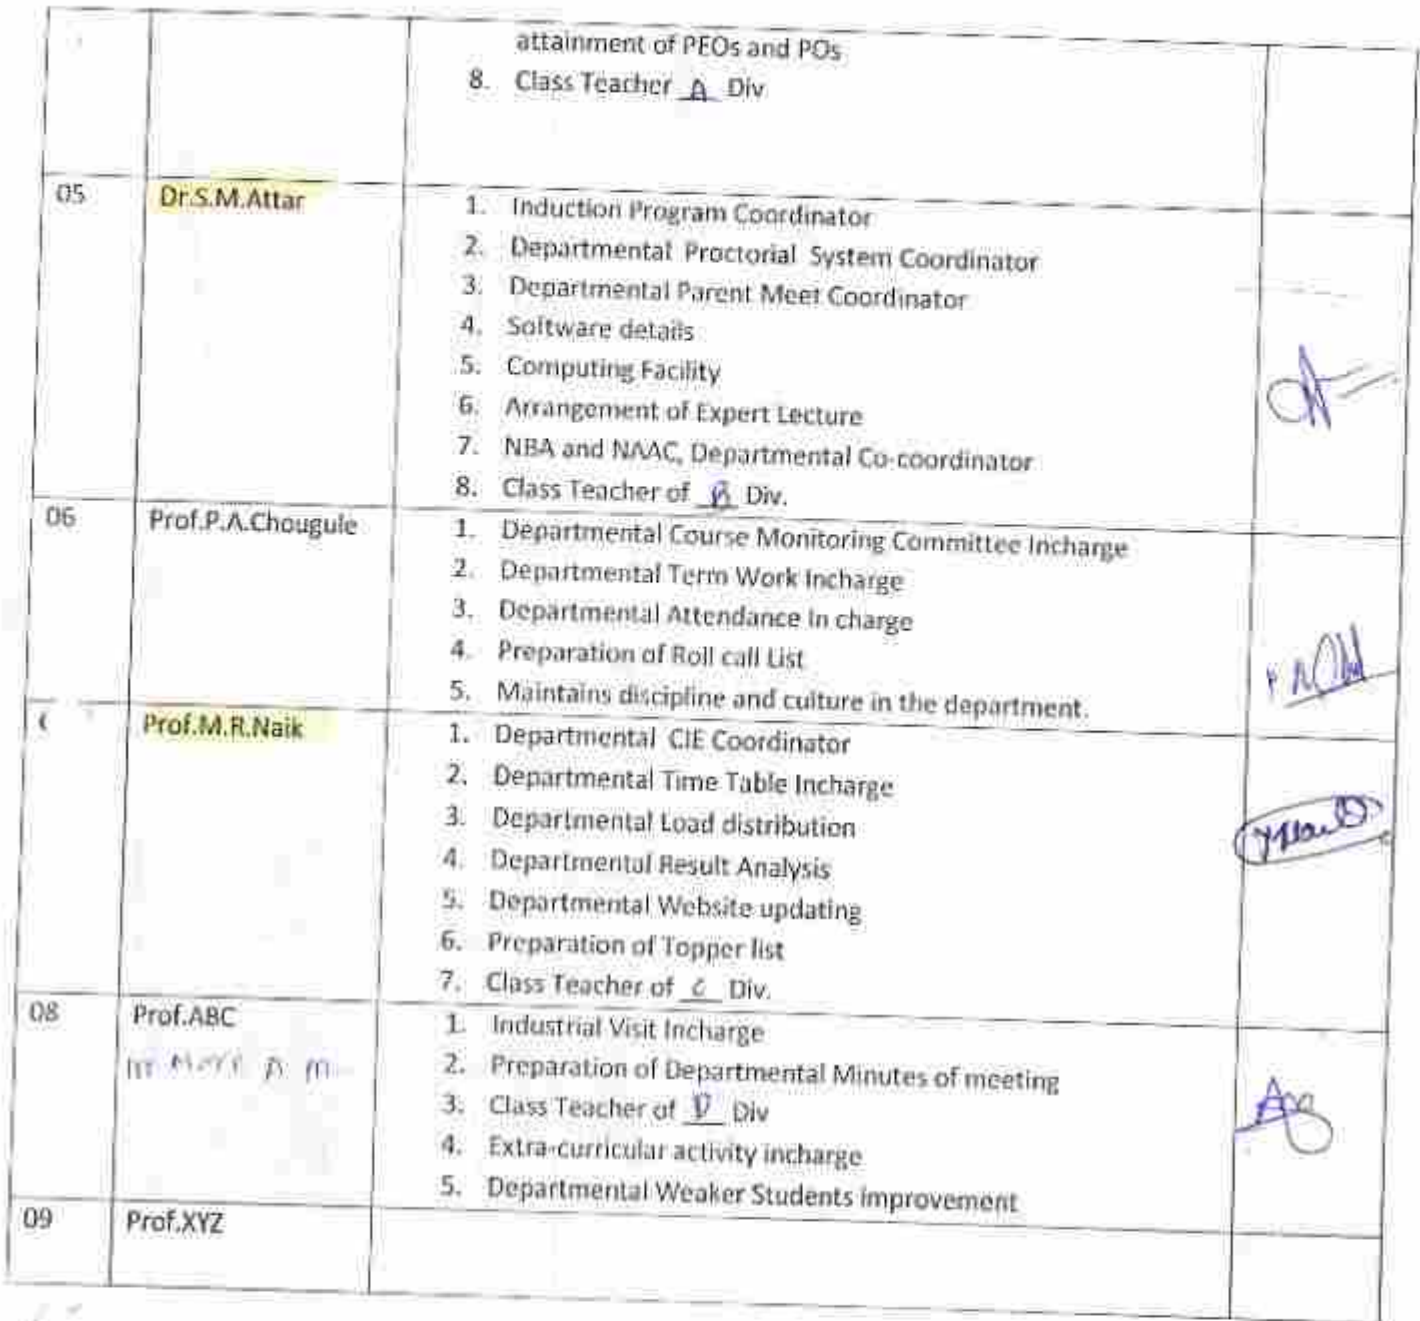 attainment of PEOs and POs
8. Class Teacher A Div
05 Dr.S.M.Attar
1. Induction Program Coordinator
2. Departmental Proctorial System Coordinator
3. Departmental Parent Meet Coordinator
4. Software details
5. Computing Facility
6. Arrangement of Expert Lecture
7. NBA and NAAC, Departmental Co-coordinator
8. Class Teacher of B Div.
06 Prof.P.A.Chougule
1. Departmental Course Monitoring Committee Incharge
2. Departmental Term Work Incharge
3. Departmental Attendance In charge
4. Preparation of Roll call List
5. Maintains discipline and culture in the department.
Prof.M.R.Naik
1. Departmental CIE Coordinator
2. Departmental Time Table Incharge
3. Departmental Load distribution
4. Departmental Result Analysis
5. Departmental Website updating
6. Preparation of Topper list
7. Class Teacher of C Div.
08 Prof.ABC
1. Industrial Visit Incharge
2. Preparation of Departmental Minutes of meeting
3. Class Teacher of D Div
4. Extra-curricular activity incharge
5. Departmental Weaker Students improvement
09 Prof.XYZ